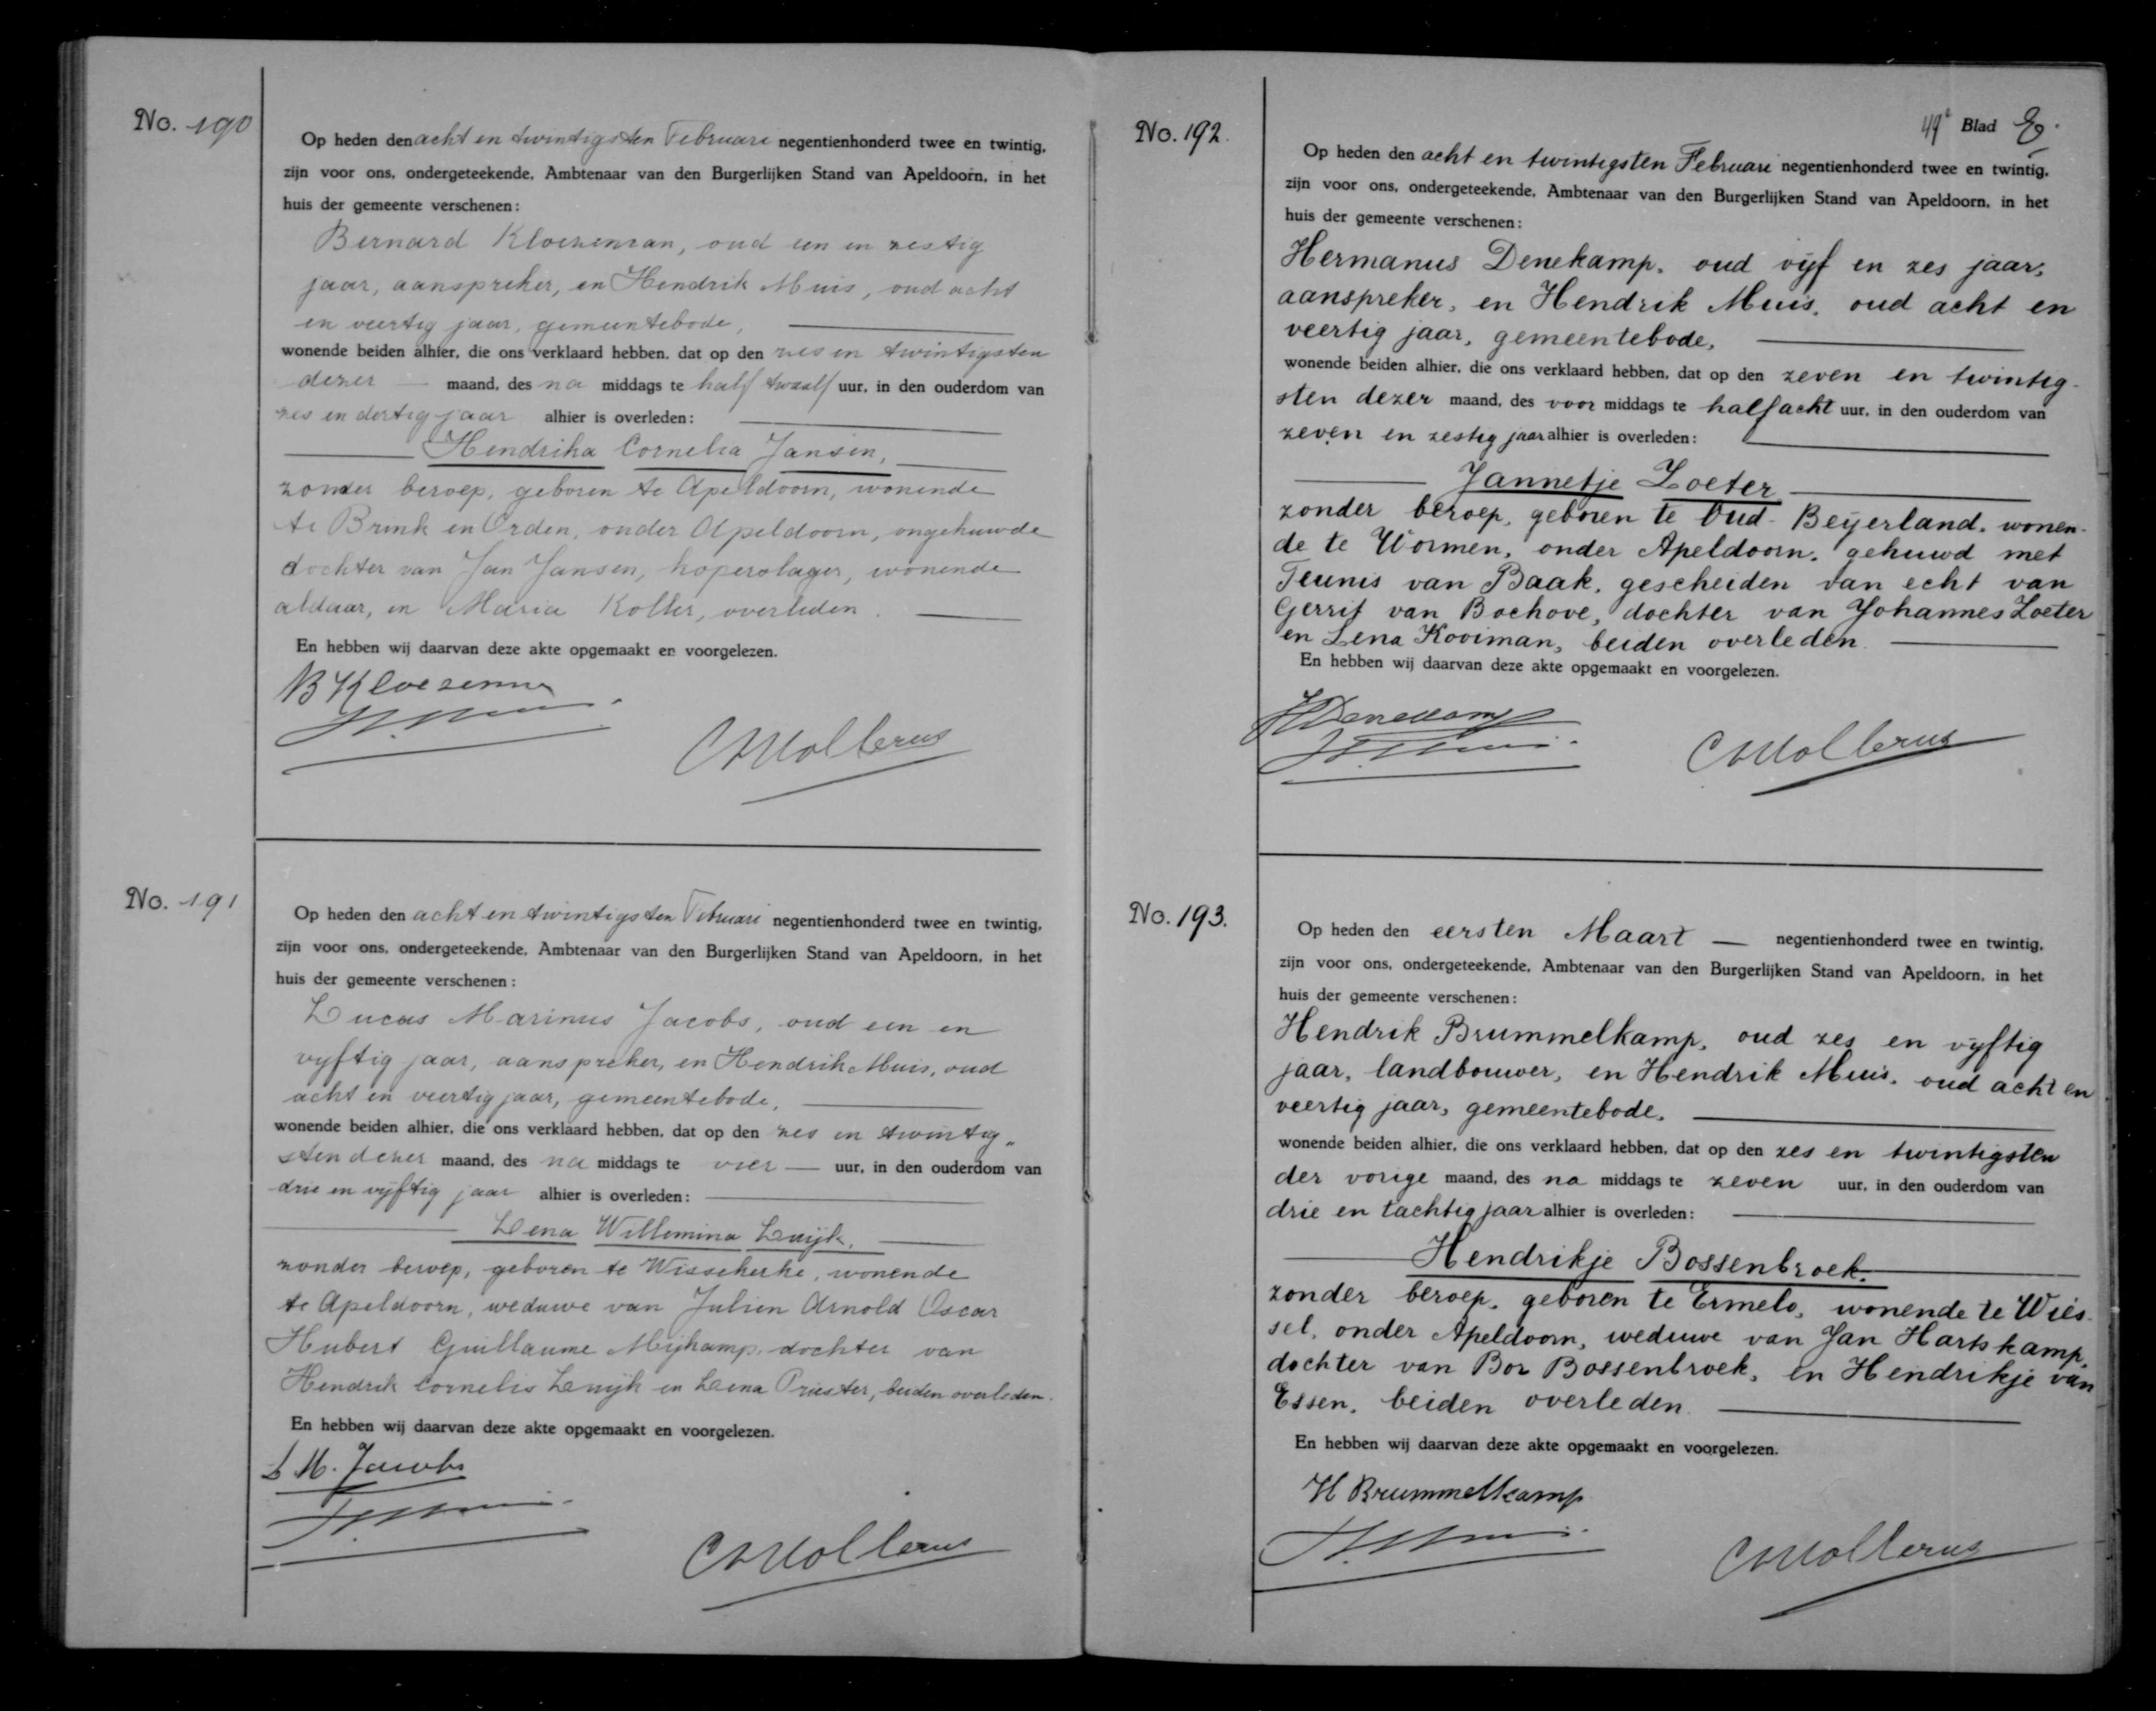 No. 190
Op heden den acht en twintigsten Februari negentienhonderd twee en twintig,
zijn voor ons, ondergeteekende, Ambtenaar van den Burgerlijken Stand van Apeldoorn, in het
huis der gemeente verschenen:
Bernard Kloezeman, oud een en zestig
jaar, aanspreker, en Hendrik Muis, oud acht
en veertig jaar, gemeentebode,
wonende beiden alhier, die ons verklaard hebben, dat op den zes en twintigsten
dezer maand, des na middags te half twaalf uur, in den ouderdom van
zes en dertig jaar alhier is overleden:
Hendrika Cornelia Jansen,
zonder beroep, geboren te Apeldoorn, wonende
te Brink en Orden, onder Apeldoorn, ongehuwde
dochter van Jan Jansen, koperslager, wonende
aldaar, en Maria Kolter, overleden.
En hebben wij daarvan deze akte opgemaakt en voorgelezen.
B Kloezeman
H. Muis.
CMollerus
No. 191
Op heden den acht en twintigsten Februari negentienhonderd twee en twintig,
zijn voor ons, ondergeteekende, Ambtenaar van den Burgerlijken Stand van Apeldoorn, in het
huis der gemeente verschenen:
Lucas Marinus Jacobs, oud een en
vijftig jaar, aanspreker, en Hendrik Muis, oud
acht en veertig jaar, gemeentebode,
wonende beiden alhier, die ons verklaard hebben, dat op den zes en twintig„
sten dezer maand, des na middags te vier — uur, in den ouderdom van
drie en vijftig jaar alhier is overleden:
Lena Willemina Luijk,
zonder beroep, geboren te Wissekerke, wonende
te Apeldoorn, weduwe van Julien Arnold Oscar
Hubert Guillaume Mijkamp, dochter van
Hendrik Cornelis Luijk en Lena Priester, beiden overleden.
En hebben wij daarvan deze akte opgemaakt en voorgelezen.
L M. Jacobs
H. Muis.
CMollerus
49e Blad
No. 192.
Op heden den acht en twintigsten Februari negentienhonderd twee en twintig,
zijn voor ons, ondergeteekende, Ambtenaar van den Burgerlijken Stand van Apeldoorn, in het
huis der gemeente verschenen:
Hermanus Denekamp, oud vijf en zes jaar,
aanspreker, en Hendrik Muis, oud acht en
veertig jaar, gemeentebode,
wonende beiden alhier, die ons verklaard hebben, dat op den zeven en twintig-
sten dezer maand, des voor middags te half acht uur, in den ouderdom van
zeven en zestig jaar alhier is overleden:
Jannetje Loeter
zonder beroep, geboren te Oud-Beijerland, wonen-
de te Wormen, onder Apeldoorn, gehuwd met
Teunis van Baak, gescheiden van echt van
Gerrit van Bochove, dochter van Johannes Loeter
en Lena Kooiman, beiden overleden.
En hebben wij daarvan deze akte opgemaakt en voorgelezen.
HDenekamp
H. Muis.
CMollerus
No. 193.
Op heden den eersten Maart — negentienhonderd twee en twintig,
zijn voor ons, ondergeteekende, Ambtenaar van den Burgerlijken Stand van Apeldoorn, in het
huis der gemeente verschenen:
Hendrik Brummelkamp, oud zes en vijftig
jaar, landbouwer, en Hendrik Muis, oud acht en
veertig jaar, gemeentebode,
wonende beiden alhier, die ons verklaard hebben, dat op den zes en twintigsten
der vorige maand, des na middags te zeven uur, in den ouderdom van
drie en tachtig jaar alhier is overleden:
Hendrikje Bossenbroek,
zonder beroep, geboren te Ermelo, wonende te Wies-
sel, onder Apeldoorn, weduwe van Jan Hartskamp,
dochter van Bor Bossenbroek, en Hendrikje van
Essen, beiden overleden.
En hebben wij daarvan deze akte opgemaakt en voorgelezen.
H Brummelkamp
H. Muis.
CMollerus